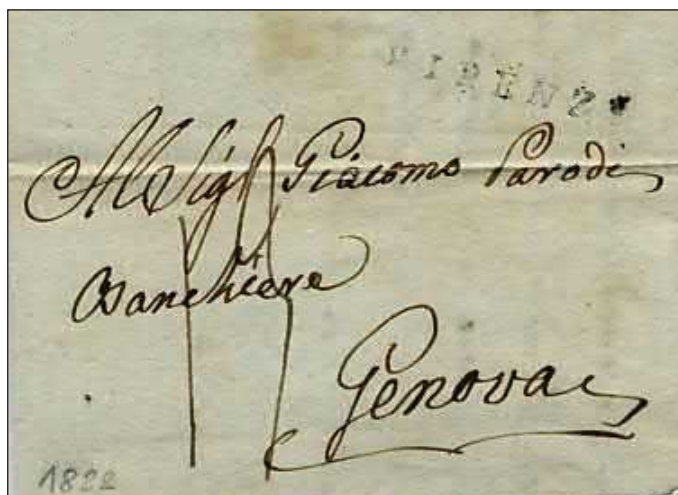 FIRENZE
Al Sig.r Giacomo Parodi
Banchiere
Genova
1822